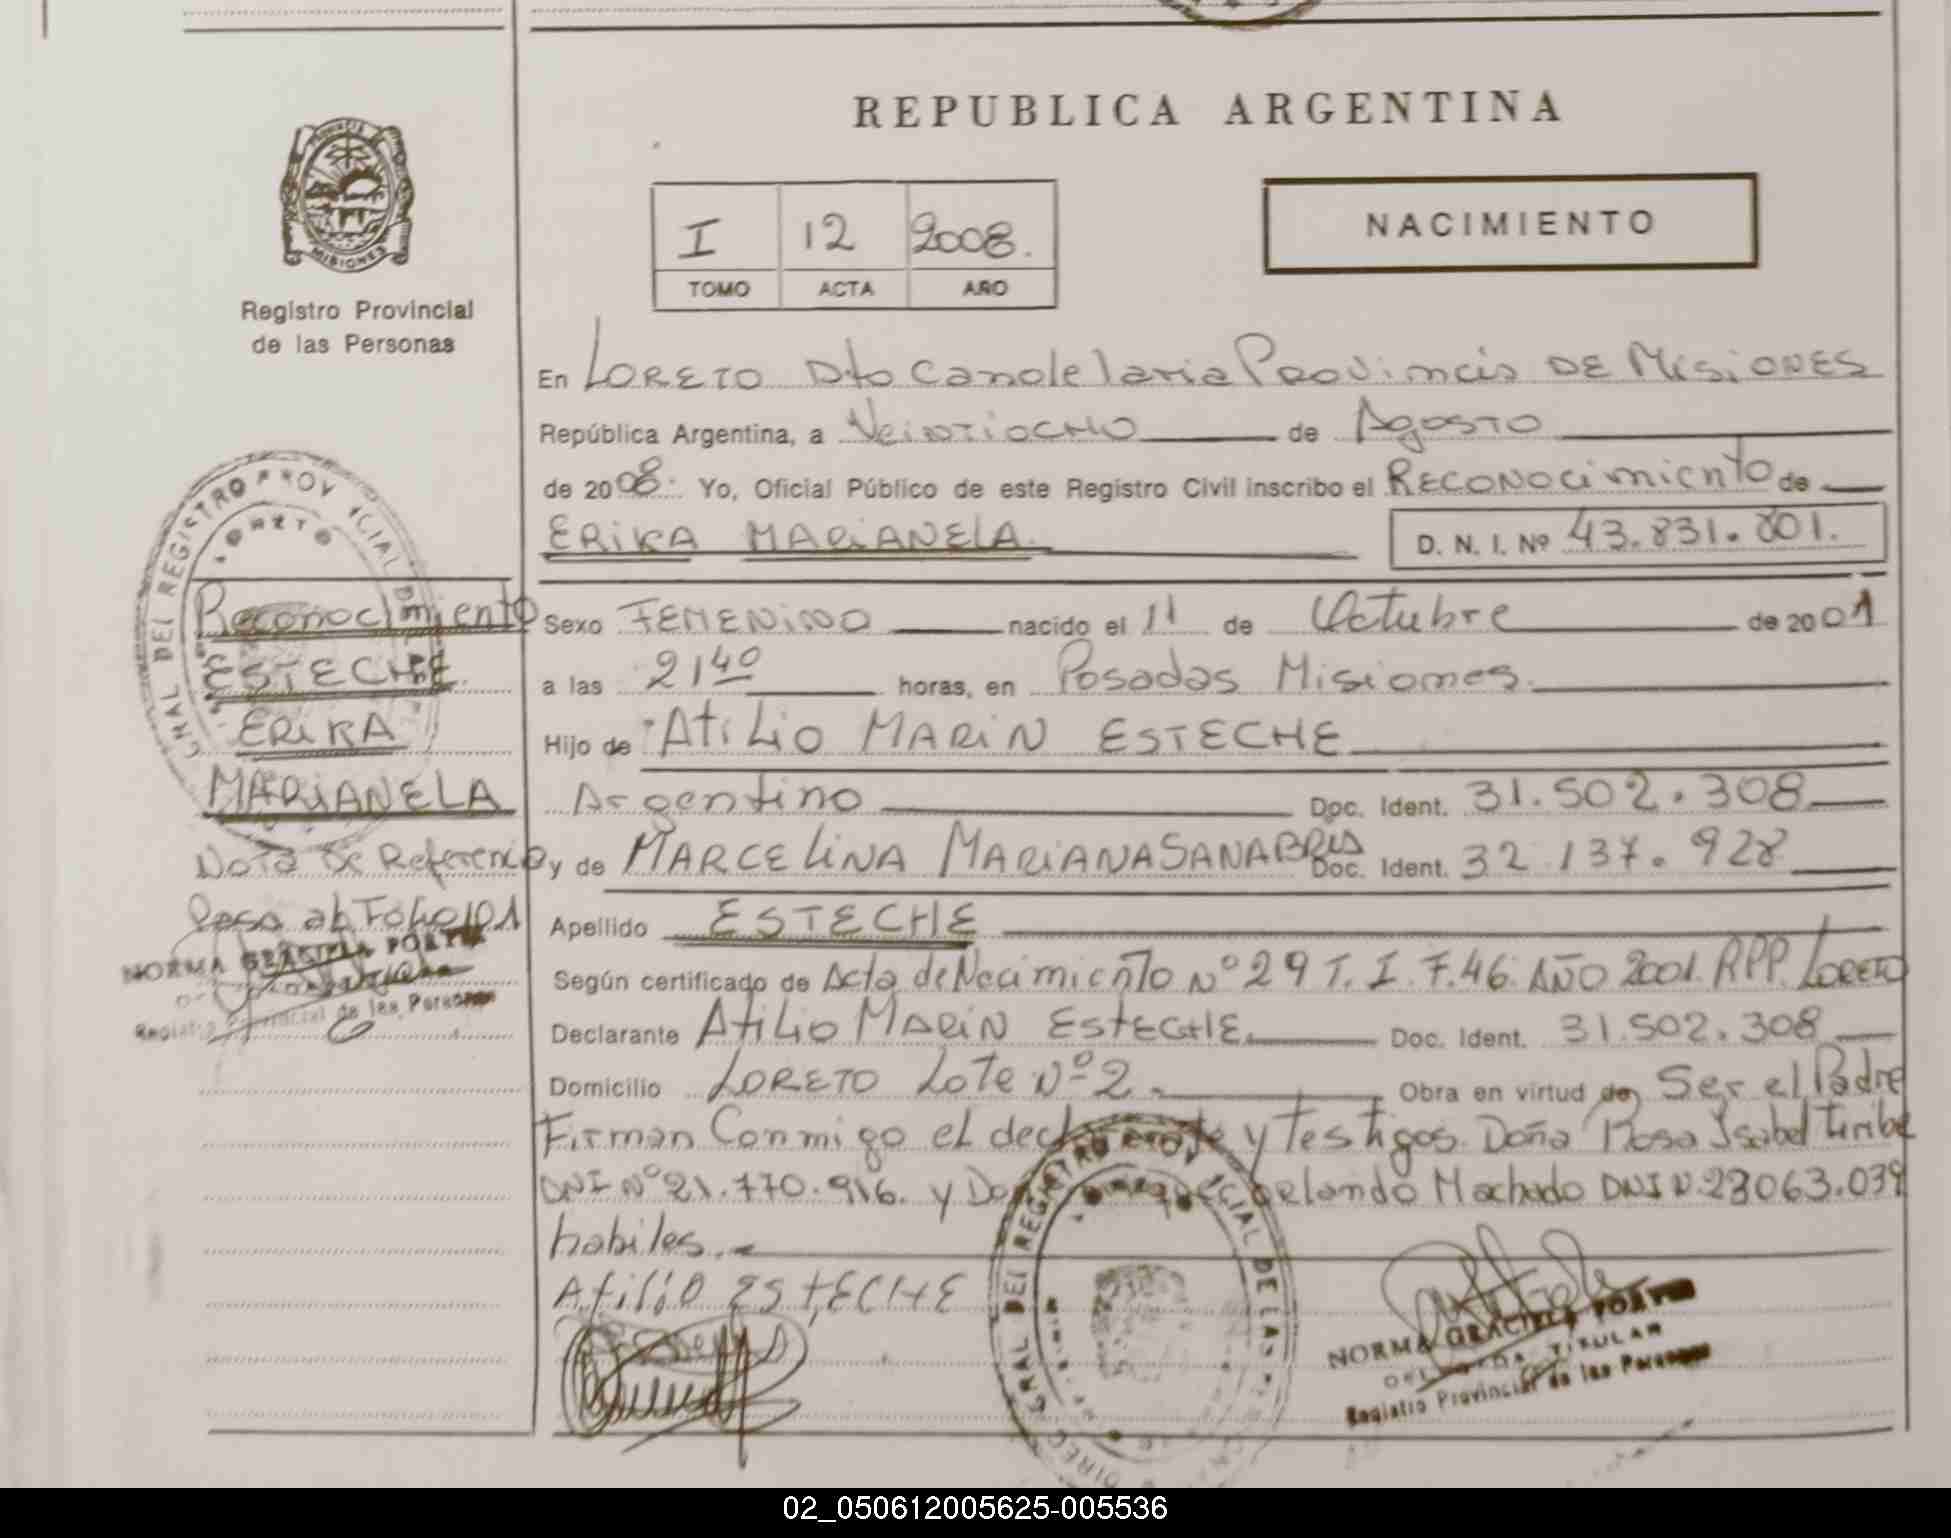 REPUBLICA ARGENTINA
MISIONES
Registro Provincial
de las Personas
I 12 2008.
TOMO ACTA AÑO
NACIMIENTO
En LORETO Dto Candelaria Provincia DE MISIONES
República Argentina, a Veintiocho de Agosto
de 2008. Yo, Oficial Público de este Registro Civil inscribo el Reconocimiento de
ERIKA MARIANELA. D. N. I. Nº 43.831.801.
Reconocimiento
ESTECHE
ERIKA
MARIANELA
Nota de Referencia
Pasa al Folio 101
NORMA GRACIELA
Registro Provincial de las Personas
Sexo FEMENINO nacido el 11 de Octubre de 2001
a las 21 40 horas, en Posadas Misiones.
Hijo de Atilio MARIN ESTECHE
Argentino Doc. Ident. 31.502.308
y de MARCELINA MARIANA SANABRIA Doc. Ident. 32 137.928
Apellido ESTECHE
Según certificado de Acta de Nacimiento Nº 29 T. I. F. 46. AÑO 2001. RPP. LORETO
Declarante Atilio MARIN ESTECHE. Doc. Ident. 31.502.308
Domicilio LORETO Lote Nº 2. Obra en virtud de Ser el Padre
Firman Conmigo el declarante y testigos. Doña Rosa Isabel
DNI Nº 21.770.916. y Don Orlando Machado DNI N. 23063.039
habiles.
Atilio ESTECHE
NORMA GRACIELA
TITULAR
Registro Provincial de las Personas
02_050612005625-005536